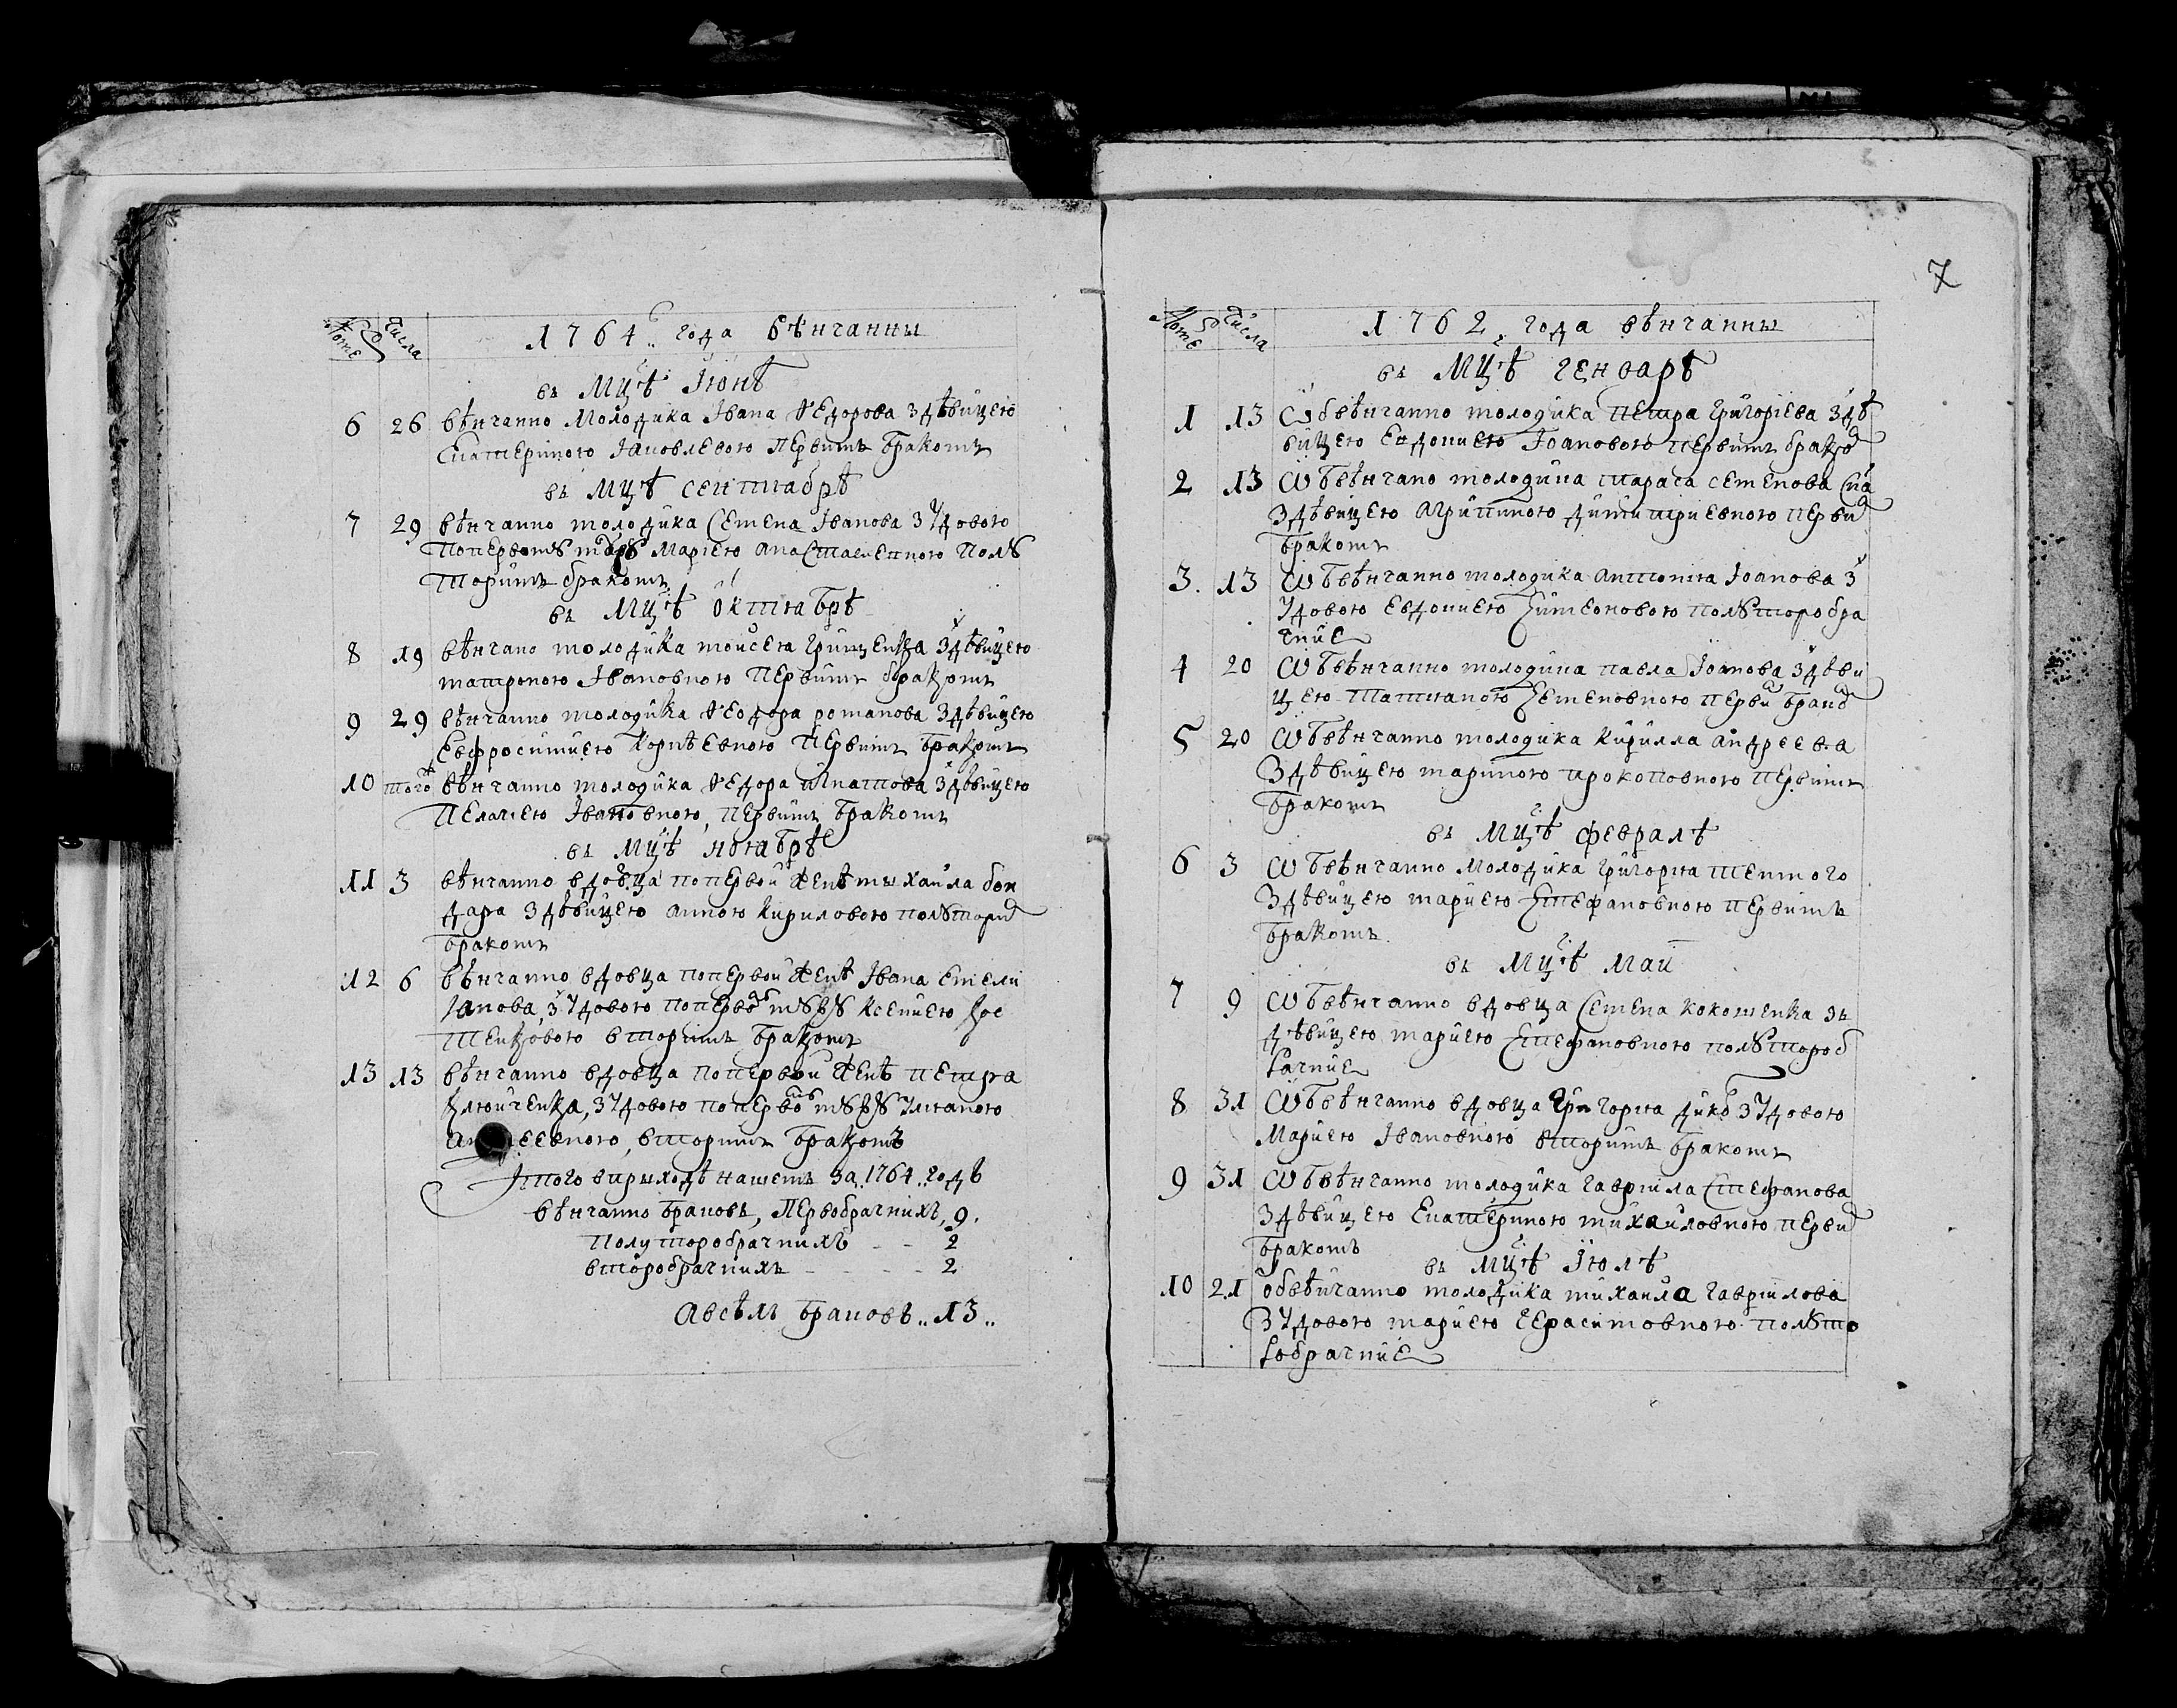 Номѣръ Числа 1764 года вѣнчанны
въ Мцѣ Іюнѣ
6 26 вѣнчанно Молодика Івана Ѳедорова здѣвицею
Екатериною Іаковлевою первимъ бракомъ
въ мцѣ сентмабрѣ
7 29 вѣнчанно молодика Семена Іванова з удовою
попервомꙋ Мариею Анастасиевною полꙋ
торимъ бракомъ
въ Мцѣ Октюабрѣ
8 19 вѣнчано молодика моисея Грищенка здѣвицею
матроною Івановною Первимъ бракомъ
9 29 вѣнчанно молодика Ѳеодора романова здѣвицею
Евфросиниею Корнѣевною Первимъ бракомъ
10 того вѣнчанно молодика Ѳедора Игнатова здѣвицею
Пелагиею Івановною, первимъ бракомъ
въ Мцѣ ноябрѣ
11 3 вѣнчанно вдовца попервой женѣ михаила бон
даря здѣвицею анною Кириловою полꙋтори
бракомъ
12 6 вѣнчанно вдовца попервой женѣ Івана Емели
янова, з удовою поперво мꙋжꙋ Ксениею Кос
тенковою вторимъ бракомъ
13 13 вѣнчанно вдовца попервой женѣ петра
Клюиченка, з удовою поперво мꙋжꙋ Улияною
вторимъ бракомъ
Итого вприходѣ нашемъ за 1764 годъ
вѣнчанно браковъ, Первобрачнихъ, 9.
Полуторобрачнихъ - - 2
второбрачнихъ - - - - 2
Авсѣхъ браковъ .. 13 ..
7
Номѣръ Числа 1762 года вѣнчанны
въ Мцѣ генварѣ
1 13 Ѡбвѣнчанно молодика петра Григориева здѣ
вицею Евдокиею Іоановою первимъ бракō
2 13 Ѡбвѣнчано молодика тараса семенова
здѣвицею агрипиною димитриевною перви
бракомъ
3. 13 Ѡбвѣнчанно молодика антониа Іоанова з
Удовою Евдокиею Симеоновою полꙋторобра
чние
4 20 Ѡбвѣнчанно молодика павла Іоанова здѣви
цею татианою Семеновною перви брако
5 20 Ѡбвѣнчанно молодика Кирилла андреева
здѣвицею мариною прокоповною первимъ
бракомъ
въ Мцѣ февралѣ
6 3 Ѡбвѣнчанно молодика григория
здѣвицею мариею Стефановною первимъ
бракомъ
въ Мцѣ Маи
7 9 Ѡбвѣнчанно вдовца Семена кокошенка зъ
дѣвицею мариею Стефановною полꙋтороб
рачние
8 31 Ѡбвѣнчанно вдовца Григория дико з Удовою
Мариею Івановною вторимъ бракомъ
9 31 Ѡбвѣнчанно молодика гавриила Стефанова
здѣвицею Екатериною михаиловною перви
бракомъ
въ мцѣ Іюлѣ
10 21 обвѣнчанно молодика михаила гавриилова
з Удовою мариею герасимовною полꙋто
робрачние